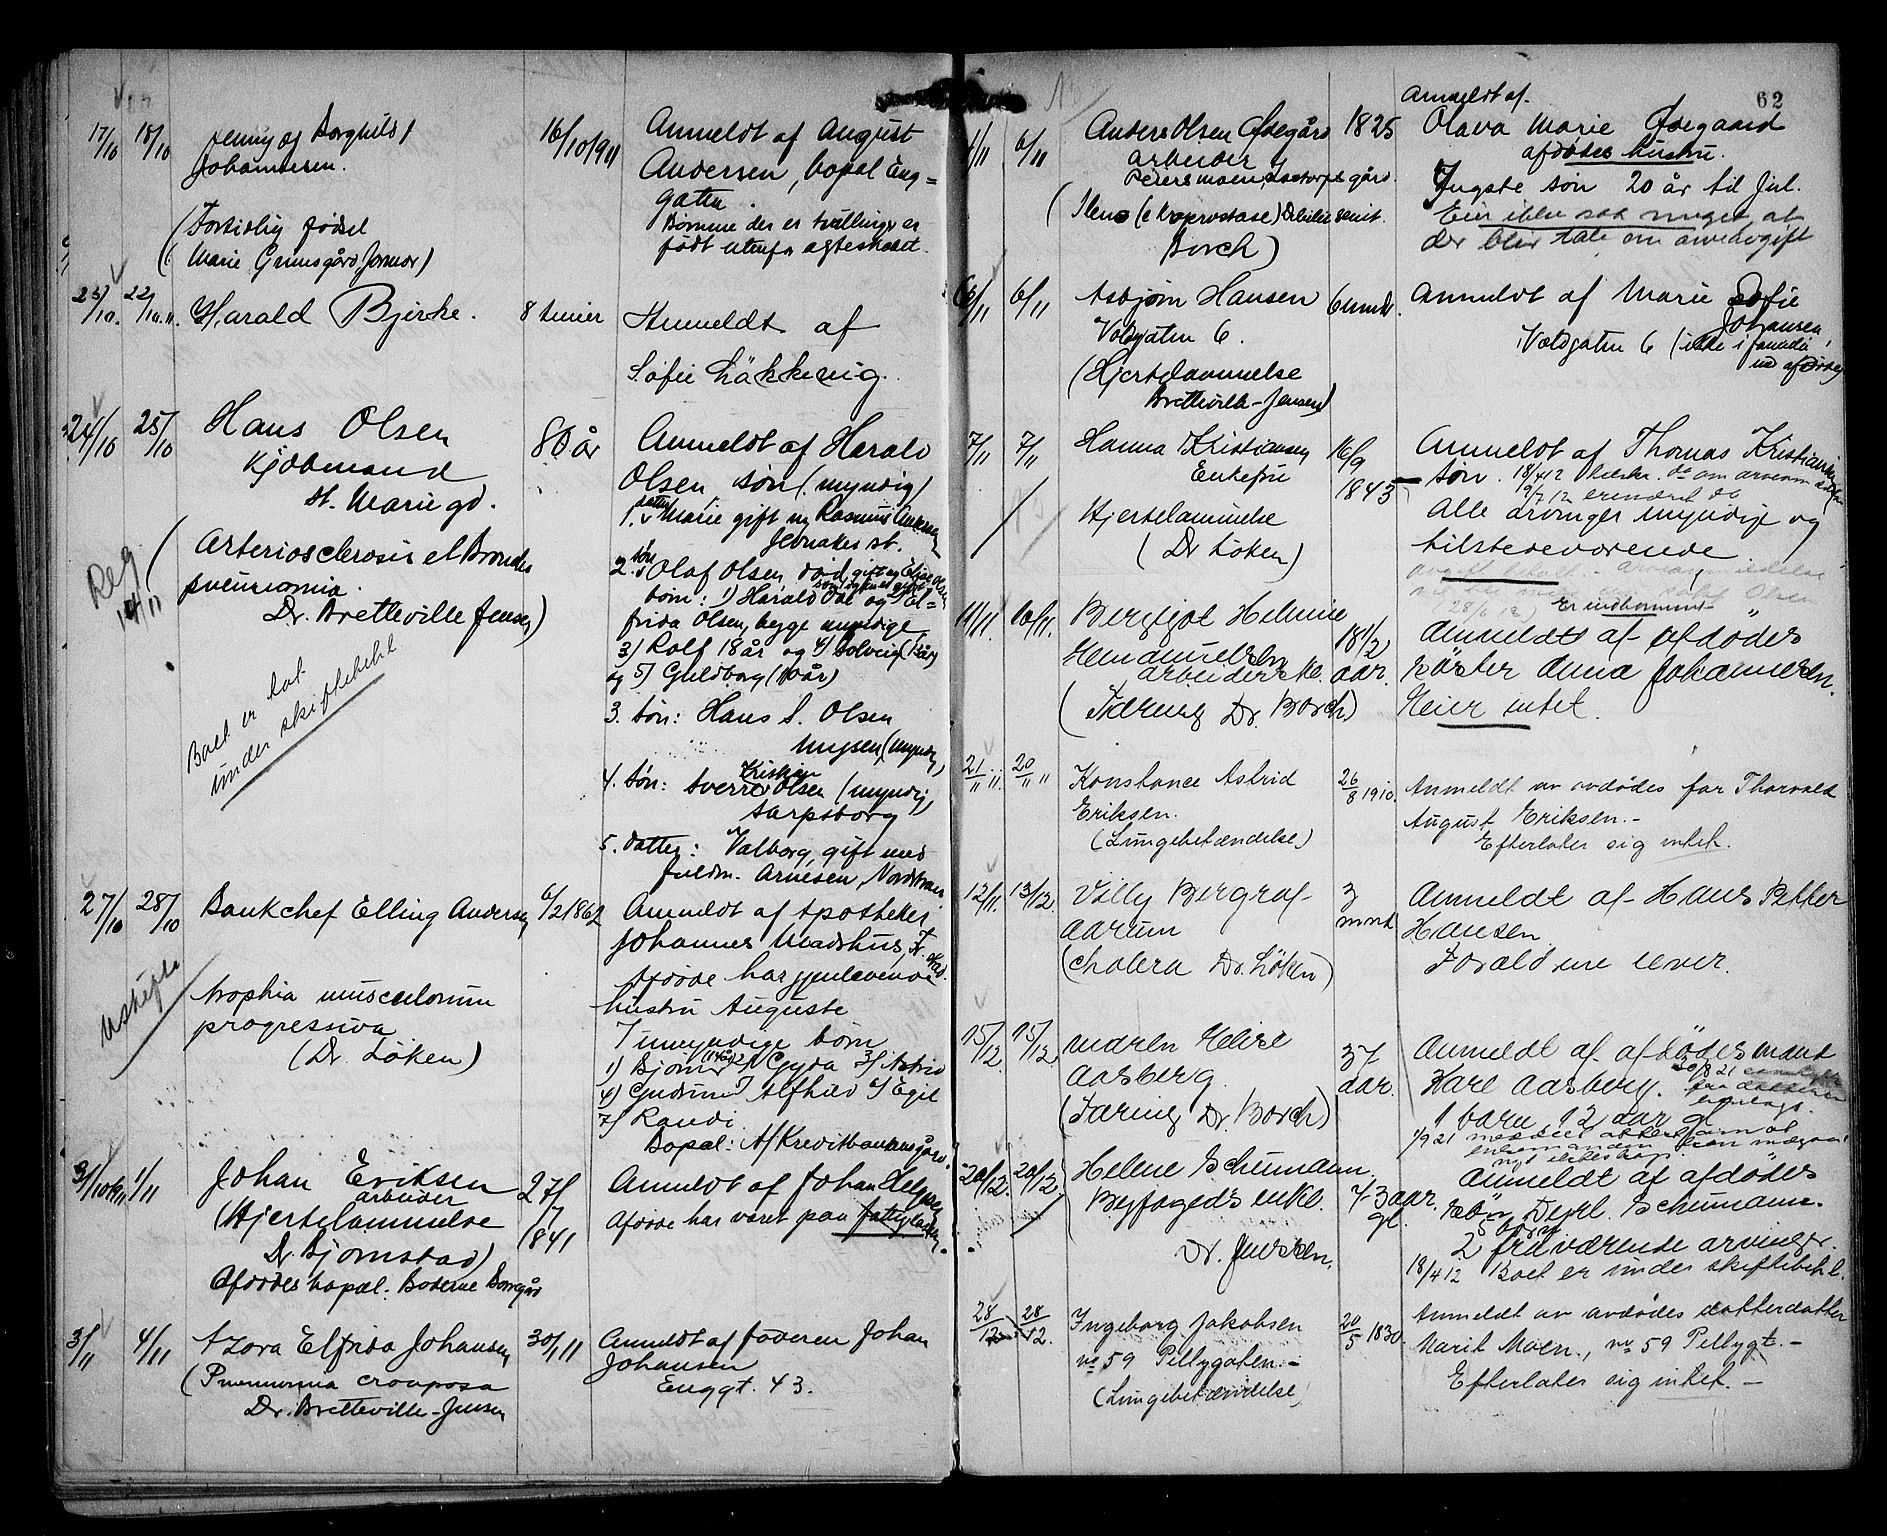 17/10 18/10 Jenny og Borghild
Johannesen.
(Fortidlig fødsel
Marie Grimsgård Jormor)
16/10 1911
Anmeldt af August
Andersen, bopæl Eng=
gaten.
Børnene der er tvillinger er
født utenfor ægteskabet.
22/10.11. Harald Bjerke. 8 timer
Anmeldt af
Sofie Läkkevig.
24/10 25/10 Hans Olsen 80 år
Kjøbmand
St. Marie gd.
(Arteriosclerosis et Broncho
pneumonia.
Dr. Bretteville Jensen)
Reg 14/11
Boet er tat
under skiftebehl
Anmeldt af Harald
Olsen, søn (myndig)
1. datter Marie gift m Rasmus Andersen
Jevnaker st.
2. søn Olaf Olsen død, gift m Elise Olsen
børn: 1) Harald Odd og 2) El=
frida Olsen, begge myndige
3) Rolf 18 år og 4) Solveig
og 5) Guldborg (10 år)
3. Søn: Hans S. Olsen
Mysen (myndig)
4. Søn: Sverre Kristian Olsen (myndig)
Sarpsborg
5. datter: Valborg, gift med
fuldm. Arnesen, Nordstrand
27/10 28/10 Bankchef Elling Andersen 6/2 1862
Atrophia musculorum
progressiva
(Dr. Löken)
Uskifte
Anmeldt af Apotheker
Johannes Madshus, Fr.stad.
Afdøde har gjenlevende
hustru Auguste
7 umyndige børn
1) Bjørn (14 år) 2) Gyda 3) Astrid
4) Gudrun 5) Alfhild 6) Egil
7) Randi.
Bopæl: Kreditbankensgård.
31/10 1/11 Johan Eriksen 27/7 1841
arbeider
(Hjertelammelse
Dr Bjørnstad)
Afdødes bopæl: Boderne Borregård
Anmeldt af Johan Helgesen
Afdøde har været paa fattigkassen.
3/11 4/11 Azora Elfrida Johansen 30/1 11
(Pneumonia crouposa
Dr. Bretteville-Jensen
Anmeldt af faderen Johan
Johansen
Enggt. 43.
62
4/11 6/11 Anders Olsen Ødegård 1825
arbeider
Peiersmoen,
(Ileus (e koprostase) Debilit. senil.
Borch)
Anmeldt af
Olava Marie Ødegaard
afdødes hustru.
Yngste søn 20 år til Jul.
Eier ikke saa meget at
der blir tale om arveavgift
6/11 6/11 Asbjørn Hansen 6 mndr.
Voldgaten 6.
(Hjertelammelse
Bretteville-Jensen)
Anmeldt af Marie Sofie
Johansen
Voldgaten 6 (ikke i familie
med afdøde)
7/11 7/11 Hanna Kristiansen 16/9 1843
Enkefru
Hjertelammelse
(Dr Löken)
Anmeldt af Thomas Kristiansen
søn.
Alle arvinger myndige og
tilstedeværende.
11/11. 10/11. Bergljot Helmine 18 1/2 aar.
Hemanuelsen
arbeiderske.
(Tæring Dr. Borch)
Er indkommet
Anmeldt af afdødes
søster Anna Johannesen.
Eier intet.
21/11 11. 20/11 11 Konstance Astrid 26/8 1910.
Eriksen.
(Lungebetændelse)
Anmeldt av avdødes far Thorvald
August Eriksen.-
Efterlater sig intet.
12/11. 13/12. Villy Bergraf 3 mnd
Aarum
(Cholera Dr. Löken)
Anmeldt af Hans Petter
Hansen
Forældrene lever.
15/12. 15/12. Maren Helise 37 aar.
Aasberg.
(Tæring Dr. Borch)
Anmeldt af afdødes mand
Karl Aasberg.
1 barn 12 aar gl.
20/12. 20/12. Helene Schumann 73 aar gl.
Byfogeds enke.
Dr. Jensen.
Anmeldt af afdødes
Søn Schumann.
2 fraværende arvinger.
18/4 12 Boet er under skiftebehl.
28/12 28/12. Ingeborg Jakobsen 20/5 1830.
no 59 Pellygaten.-
(Lungebetændelse)
Anmeldt av avdødes datterdatter
Marit Moen., no 59 Pellygt.-
Efterlater sig intet.-